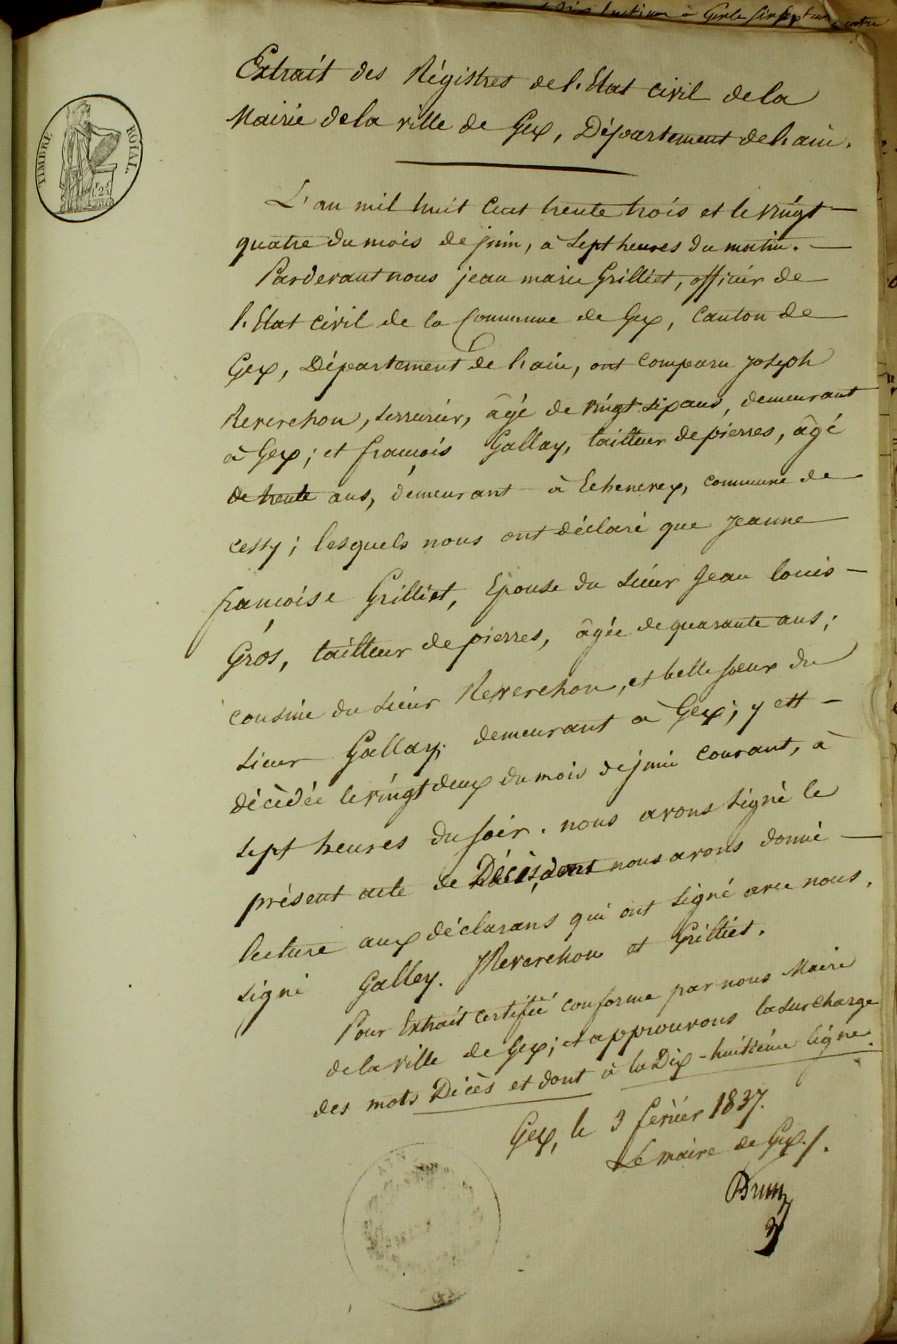 TIMBRE ROYAL
Extrait des Régistres de l'Etat civil de la
Mairie de la ville de Gex, Département de l'ain.
L'an mil huit cent trente trois et le vingt
quatre du mois de juin, à sept heures du matin.
Pardevant nous jean marie Grilliet, officier de
l'Etat civil de la Commune de Gex, Canton de
Gex, Département de l'ain, ont comparu joseph
Reverchon, serrurier, âgé de vingt six ans, demeurant
à Gex; et françois Gallay, tailleur de pierres, âgé
de trente ans, demeurant à Echenevex, commune de
cessy; lesquels nous ont déclaré que jeanne
françoise Grilliet, Epouse du sieur Jean louis
Gros, tailleur de pierres, âgée de quarante ans;
cousine du sieur Reverchon, et belle soeur du
sieur Gallay; demeurant à Gex; y est
décédée le vingt deux du mois de juin courant, à
sept heures du soir. nous avons signé le
présent acte de Décès, dont nous avons donné
lecture aux déclarans qui ont signé avec nous.
signé Galley. J Reverchon et Grilliet.
Pour Extrait certifié conforme par nous Maire
de la ville de Gex; et approuvons la surcharge
des mots Décès et dont à la Dix-huitième ligne.
Gex, le 3 fevier 1837.
Le maire de Gex.
Brun